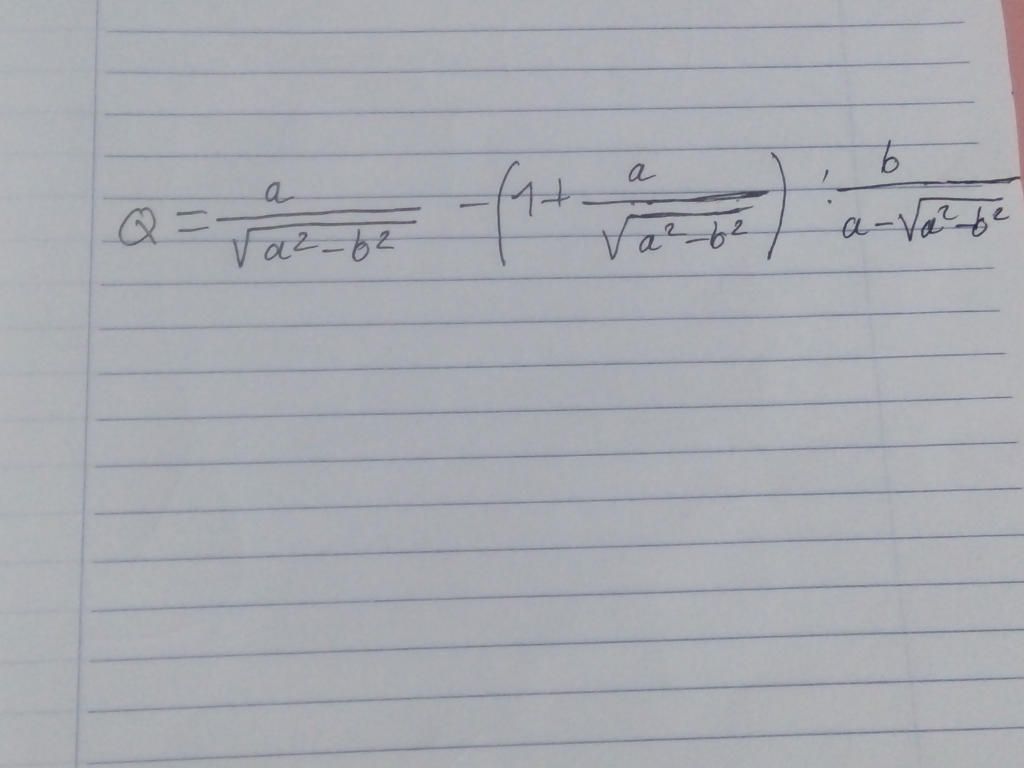 Q = \frac{a}{\sqrt{a^2-b^2}} - \left(1+\frac{a}{\sqrt{a^2-b^2}}\right) : \frac{b}{a-\sqrt{a^2-b^2}}